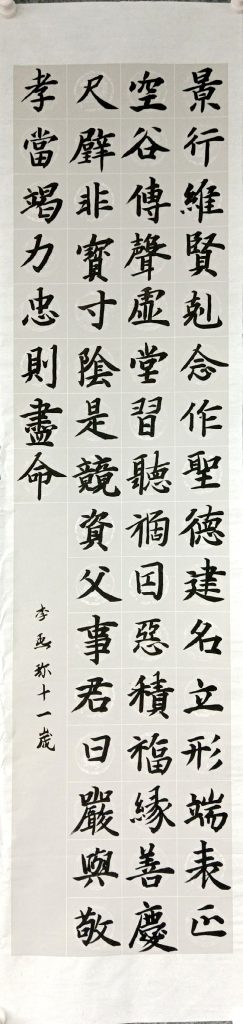 景行維賢剋念作聖德建名立形端表正
空谷傳聲虛堂習聽禍因惡積福緣善慶
尺璧非寶寸陰是競資父事君曰嚴與敬
孝當竭力忠則盡命
李　　十一歲